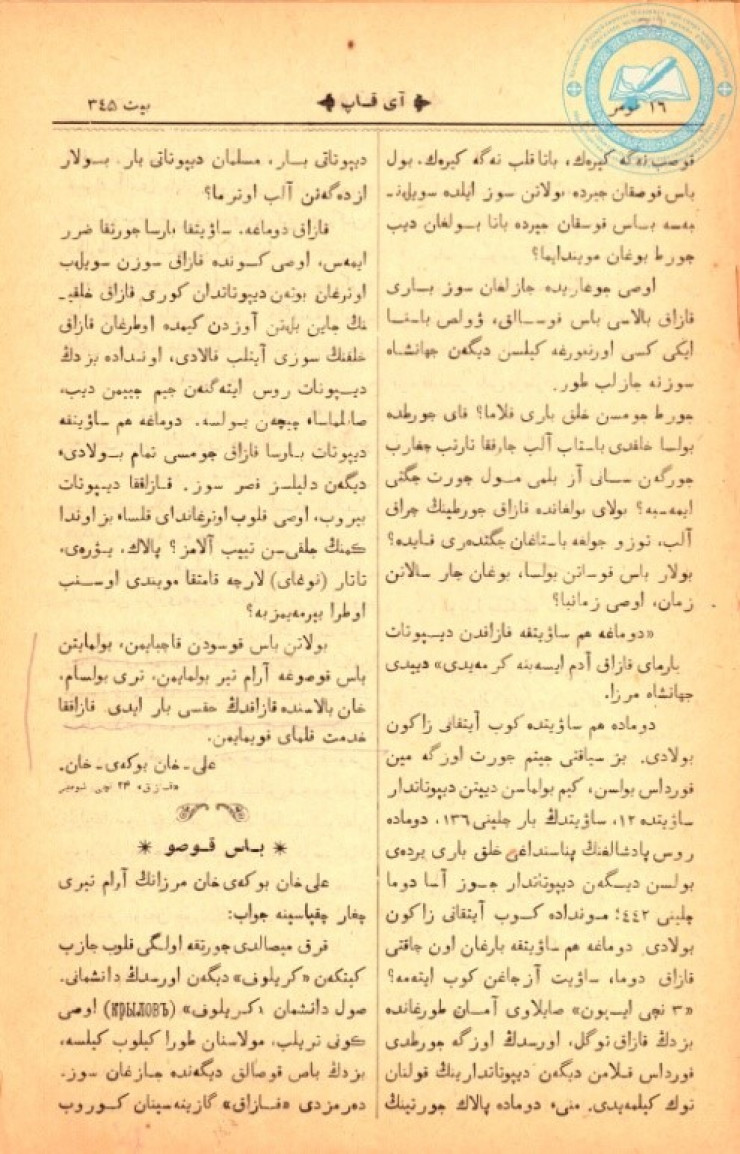 ١٦ نومر
آی قاپ
بیت ٣٤٥
قوصب نەگە کیرەك، باتا قلب نەگە کیرەك. بول
باس قوصقان جیردە بولاتن سوز ایلدە سویلنـ
بەسە بـاس قوسقان جیردە باتا بـولغان دیب
جورط بوغان مویندایما؟
اوصی جوغاریدە جازلغان سوز بـاری
قازاق بالاسی باس قوسـالق، ۋولص باسنـا
ایکی کسی اورنورغە کیلسن دیگەن جهانشاە
سوزنە جازلب طور.
جورط جومسن خلق باری قلاما؟ قای جورطدە
بولسا خلقدی باستاب آلب جارققا تارتب جغارب
جورگەن سـانی آز بلمی مـول جورت جگتی
ایمەسبە؟ بولای بولغاندە قازاق جورطینڭ چراق
آلب، توزو جولغە باستاغان جگتدەری قـایدە؟
بولار باس قوساتن بولسا، بوغان جار سالاتن
زمان، اوصی زمانبا؟
«دوماغە هم ساۋیتقە قازاقدن دیـپوتات
بارمای قازاق آدم ایسەبنە کرمەیدی» دییدی
جهانشاە مرزا.
دومادە هم ساۋیتدە کوب آیتقانی زاکون
بولادی. بز سیاقتی جیتم جورت اوزگە مین
قورداس بولسن، کیم بولماسن دیپتن دیپوتاتدار
ساۋیتدە ١٢، ساۋیتدڭ بار جلینی ١٣٦، دومادە
روس پادشالغنڭ پناسنداغی خلق باری بردەی
بولسن دیـگەن دیپوتاتدار جـوز آسا دوما
جلینی ٤٤٢؛ مـوندادە کـوب آیتقانی زاکون
بولادی. دوماغە هم ساۋیتقە بارغان اون جاقتی
قازاق دوما، ساۋیت آز جاغن کوب ایتەمە؟
«٣ نچی ایـبون» صایلاوی آمـان طورغاندە
بزدڭ قازاق توگل، اورسدڭ اوزگە جورطدی
قورداس قـلامن دیگەن دیپوتاتدارینڭ قولنان
توك کیلمەیدی. منی، دومادە پالاك جورتینڭ
دیپوتاتی بـار، مسلمان دیپوتاتی بار. بـولار
ازدەگەنن آلب اوتر ما؟
قازاق دوماغە. ساۋیتقا بارسا جورتقا ضرر
ایمەس، اوصی کـوندە قازاق سوزن سویلب
اوترغان بوتەن دیپوتاتدان کوری قازاق خلقیـ
نڭ جاین بلتن آوزدن کیمدە اوطرغان قازاق
خلقنڭ سوزی آیتلب قالادی، اونـدادە بزدڭ
دیـپوتات روس ایتەگنەن جیم جییمن دیب،
صاتلماسا، چیچەن بـولسە. دوماغە هم ساۋیتقە
دیپوتات بـارسا قازاق جومسی تمام بـولادی،
دیگەن دلیلسز قصر سوز. قـازاققا دیـپوتات
بیروب، اوصی قلوب اوترغاندای قلسا، بز اوندا
کمنڭ جلقیسن تییب آلامز؟ پالاك، یـۋرەی،
تاتار (نوغای) لارچە قامتقا مویندی اوسنب
اوطرا بیرمەیمز بە؟
بولاتن باس قوسودن قاچپایمن، بولمایتن
باس قوصوغە آرام تیر بولمایمن، تری بولسام،
خان بالاسندە قازاقدڭ حقسی بار ایدی. قازاققا
خدمت قلمای قویمایمن.
علی ـ خان بوکەی ـ خان.
«قـازاق» ٢٣ نچی نومیر
✴ بـاس قـوصو ✴
علی خان بوکەی خان مرزانڭ آرام تیری
چغار چقپاسینە جواب:
قرق میصالدی جورتقە اولگی قلوب جازب
کیتکەن «کریلوف» دیگەن اورسدڭ دانشمانی.
صول دانشمان «کریلوف» (крыловъ) اوصی
کونی تریلب، مولاسنان طورا کیلوب کیلسە،
بزدڭ باس قوصالق دیگەندە جـازغان سوز.
دەرمزدی «قـازاق» گازیتەسینان کـوروب